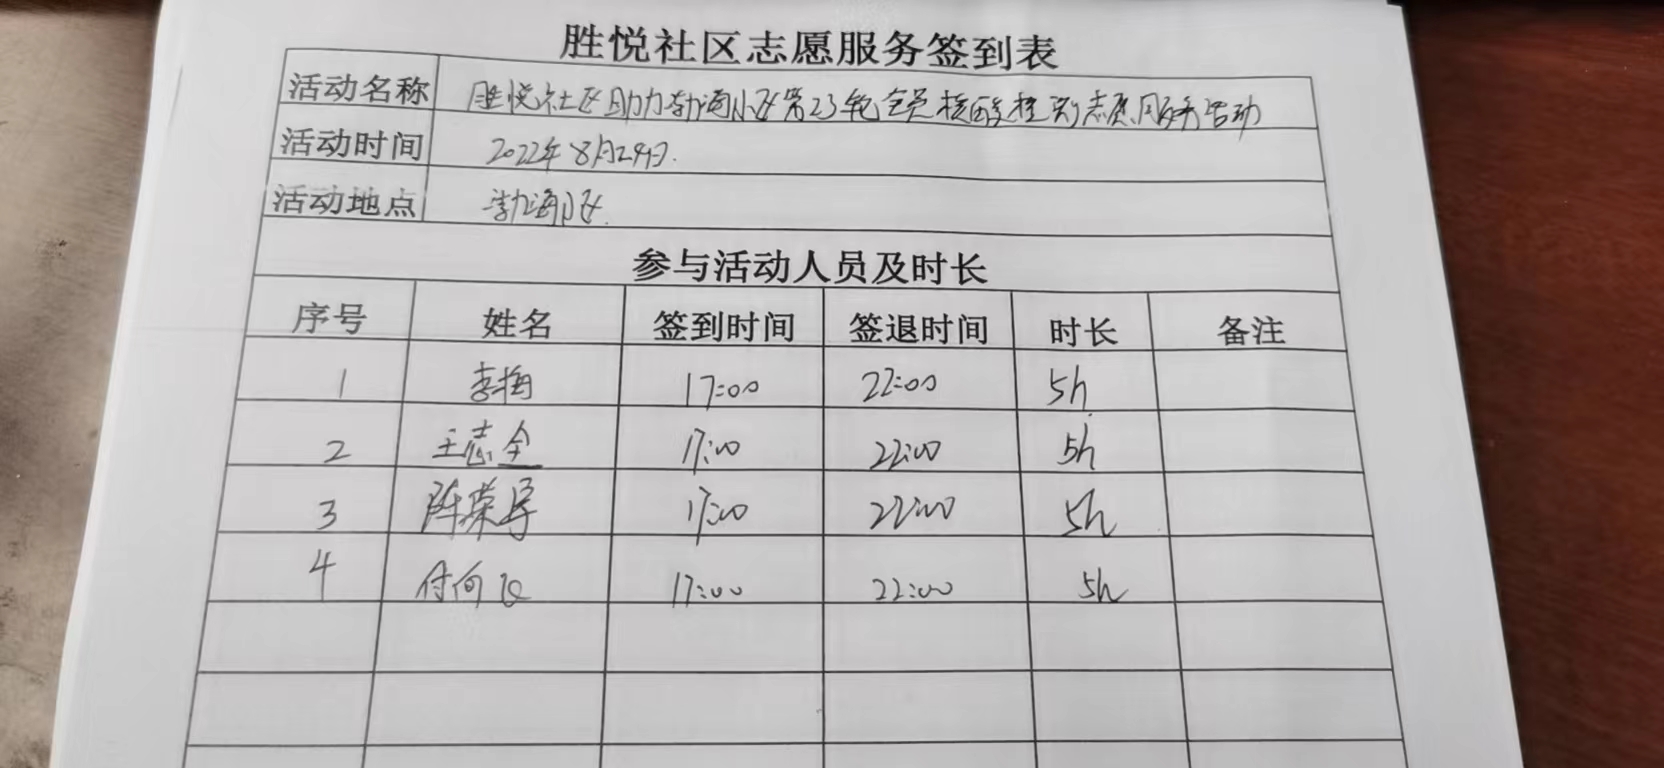 胜悦社区志愿服务签到表
活动名称 胜悦社区助力渤海小区第23轮全员核酸检测志愿服务活动
活动时间 2022年8月29日.
活动地点 渤海小区.
参与活动人员及时长
序号 姓名 签到时间 签退时间 时长 备注
1 李梅 17:00 22:00 5h
2 王志全 17:00 22:00 5h
3 陈荣 17:00 22:00 5h
4 付向 17:00 22:00 5h